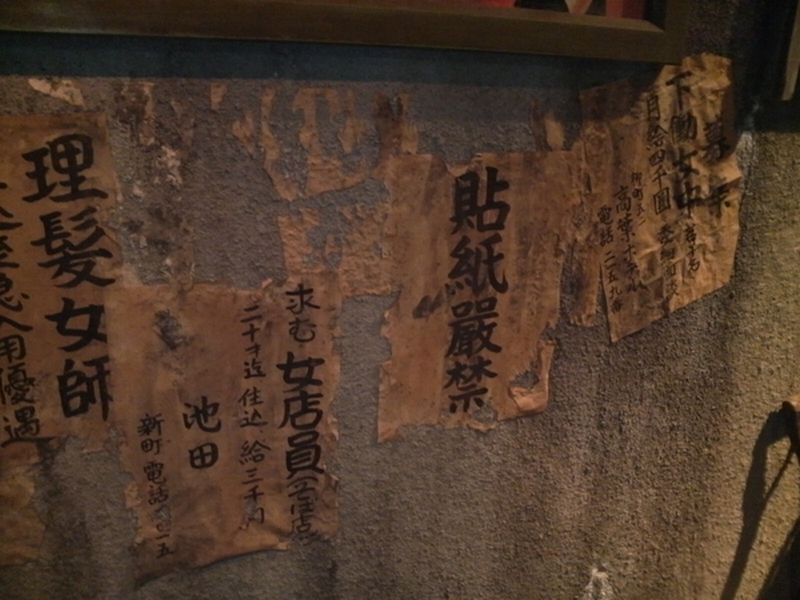 募集
下働女中
月給四千圓
高等ホテル
電話 二五九番
貼紙嚴禁
求む 女店員
二十才迄 住込 給三千円
池田
新町 電話
理髪女師
急入用優遇